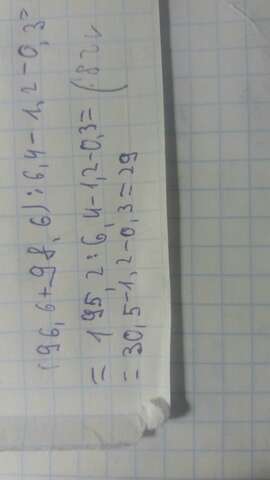 (96,6+98,6):6,4-1,2-0,3=
=195,2:6,4-1,2-0,3=
=30,5-1,2-0,3=29